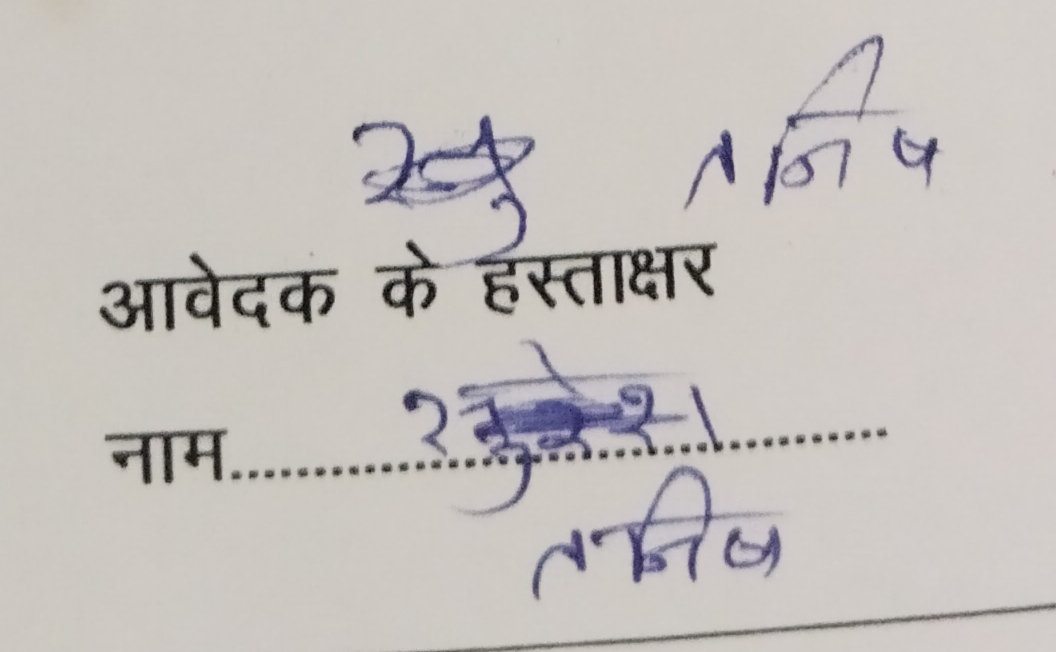 तनिष
आवेदक के हस्ताक्षर
नाम....................
तनिष